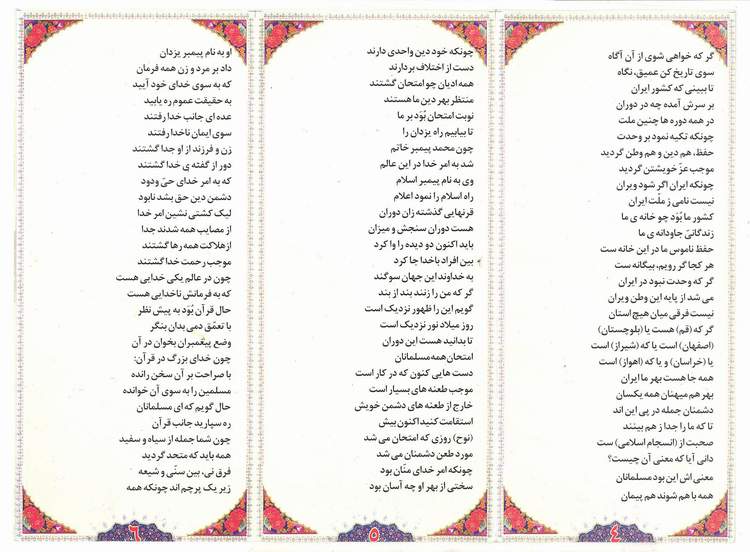 گر که خواهی شوی از آن آگاه
سوی تاریخ کن عمیق، نگاه
تا ببینی که کشور ایران
بر سرش آمده چه در دوران
در همه دوره ها چنین ملت
چونکه تکیه نمود بر وحدت
حفظ، هم دین و هم وطن گردید
موجب عزّ خویشتن گردید
چونکه ایران اگر شود ویران
نیست نامی ز ملّت ایران
کشور ما بُوَد چو خانه ی ما
زندگانیّ جاودانه ی ما
حفظ ناموس ما در این خانه ست
هر کجا گر رویم، بیگانه ست
گر که وحدت نبود در ایران
می شد از پایه این وطن ویران
نیست فرقی میان هیچ استان
گر که (قم) هست یا (بلوچستان)
(اصفهان) است یا که (شیراز) است
یا (خراسان) و یا که (اهواز) است
همه جا هست بهر ما ایران
بهر هم میهنان همه یکسان
دشمنان جمله در پی این اند
تا که ما را جدا ز هم بینند
صحبت از (انسجام اسلامی) ست
دانی آیا که معنی آن چیست؟
معنی اش این بود مسلمانان
همه با هم شوند هم پیمان
٤
چونکه خود دین واحدی دارند
دست از اختلاف بردارند
همه ادیان چو امتحان گشتند
منتظر بهر دین ما هستند
نوبت امتحان بُوَد بر ما
تا بیابیم راه یزدان را
چون محمد پیمبر خاتم
شد به امر خدا در این عالم
وی به نام پیمبر اسلام
راه اسلام را نمود اعلام
قرنهایی گذشته زان دوران
هست دوران سنجش و میزان
باید اکنون دو دیده را وا کرد
بین افراد باخدا جا کرد
به خداوند این جهان سوگند
گر که من را زنند بند از بند
گویم این را ظهور نزدیک است
روز میلاد نور نزدیک است
تا بدانید هست این دوران
امتحان همه مسلمانان
دست هایی کنون که در کار است
موجب طعنه های بسیار است
خارج از طعنه های دشمن خویش
استقامت کنید اکنون بیش
(نوح) روزی که امتحان می شد
مورد طعن دشمنان می شد
چونکه امر خدای منّان بود
سختی از بهر او چه آسان بود
٥
او به نام پیمبر یزدان
داد بر مرد و زن همه فرمان
که به سوی خدای خود آیید
به حقیقت عموم ره یابید
عده ای جانب خدا رفتند
سوی ایمان ناخدا رفتند
زن و فرزند از او جدا گشتند
دور از گفته ی خدا گشتند
که به امر خدای حیّ ودود
دشمن دین حق بشد نابود
لیک کشتی نشین امر خدا
از مصایب همه شدند جدا
از هلاکت همه رها گشتند
موجب رحمت خدا گشتند
چون در عالم یکی خدایی هست
که به فرمانش ناخدایی هست
حال قرآن بُوَد به پیش نظر
با تعمّق دمی بدان بنگر
وضع پیغمبران بخوان در آن
چون خدای بزرگ در قرآن:
با صراحت بر آن سخن رانده
مسلمین را به سوی آن خوانده
حال گویم که ای مسلمانان
ره سپارید جانب قرآن
چون شما جمله از سیاه و سفید
همه باید که متحد گردید
فرق نی، بین سنّی و شیعه
زیر یک پرچم اند چونکه همه
٦